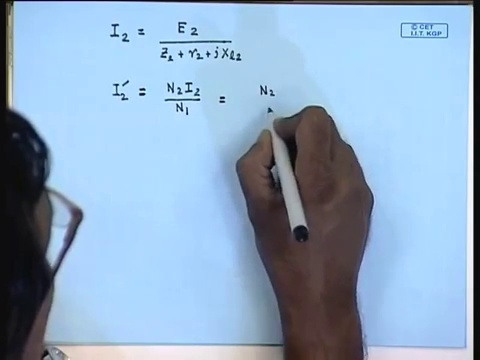 © CET
I.I.T. KGP
I₂ = E₂ / (Z₂ + r₂ + jXl₂)
I₂′ = N₂I₂ / N₁ = N₂